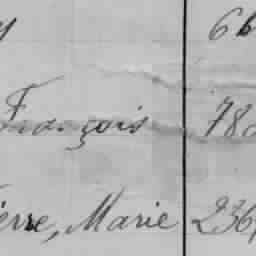 66
François 78
erre, Marie 236